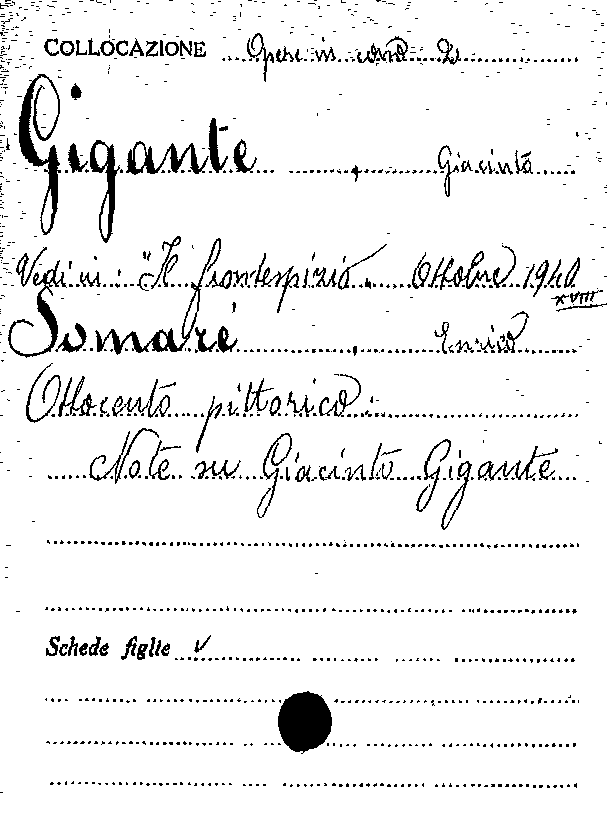 COLLOCAZIONE Opere in cons 2
Gigante, Giacinto
Vedi in: "Il frontespizio„ Ottobre 1940
XVIII
Somaré, Enrico
Ottocento pittorico:
Note su Giacinto Gigante
Schede figlie V